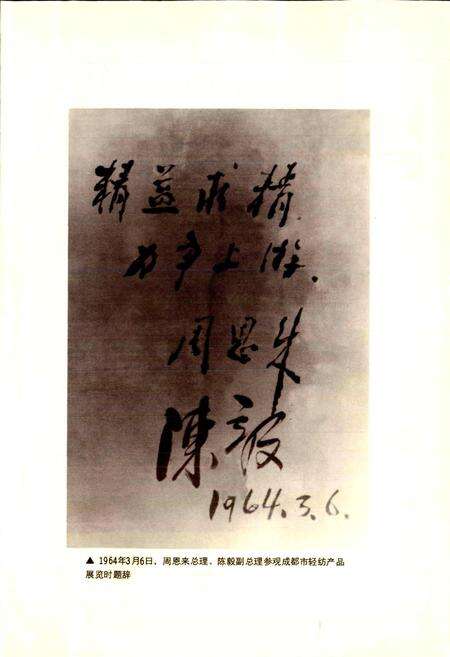 精益求精
力争上游.
周恩来
陳毅
1964.3.6.
▲ 1964年3月6日，周恩来总理、陈毅副总理参观成都市轻纺产品
展览时题辞